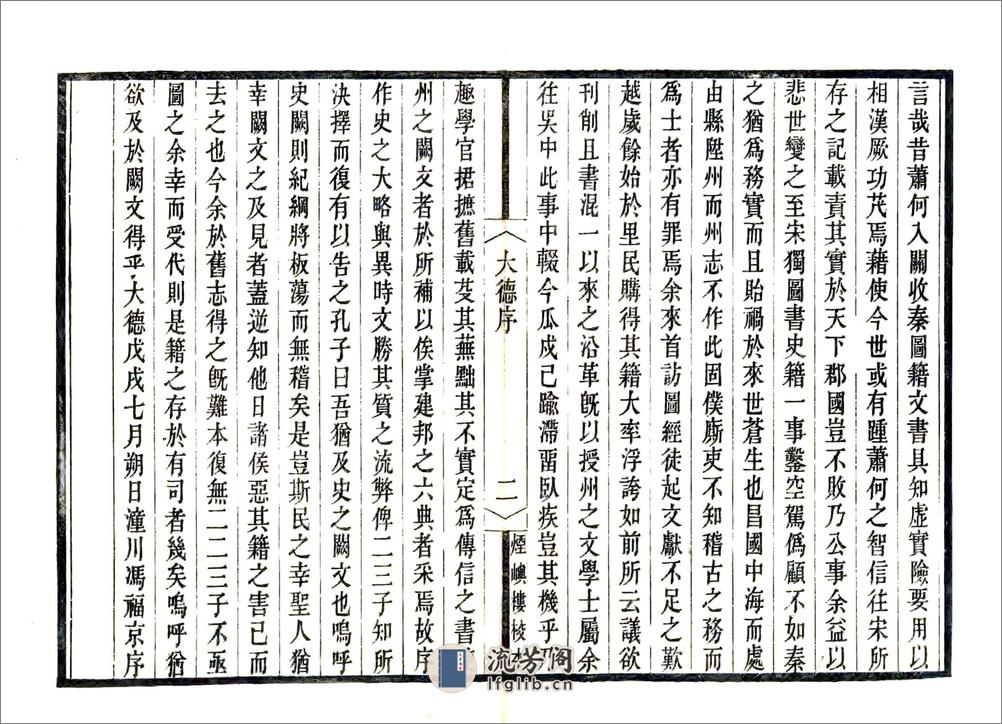 言哉昔蕭何入關收秦圖籍文書具知虛實險要用以
相漢厥功茂焉藉使今世或有踵蕭何之智信往宋所
存之記載責其實於天下郡國豈不敗乃公事余益以
悲世變之至宋獨圖書史籍一事鑿空駕僞顧不如秦
之猶爲務實而且貽禍於來世蒼生也昌國中海而處
由縣陞州而州志不作此固僕廝吏不知稽古之務而
爲士者亦有罪焉余來首訪圖經徒起文獻不足之歎
越歲餘始於里民購得其籍大率浮誇如前所云議欲
刊削且書混一以來之沿革旣以授州之文學士屬余
往吳中此事中輟今瓜戍已踰滯畱臥疾豈其機乎
大德序
二
煙嶼樓校
趣學官捃摭舊載芟其蕪黜其不實定爲傳信之書
州之闕文者於所補以俟掌建邦之六典者采焉故序
作史之大略與異時文勝其質之流弊俾二三子知所
決擇而復有以告之孔子曰吾猶及史之闕文也嗚呼
史闕則紀綱將板蕩而無稽矣是豈斯民之幸聖人猶
幸闕文之及見者蓋逆知他日諸侯惡其籍之害己而
去之也今余於舊志得之旣難本復無二二三子不亟
圖之余幸而受代則是籍之存於有司者幾矣嗚呼猶
欲及於闕文得乎大德戊戌七月朔日潼川馮福京序
流芳閣
lfglib.cn